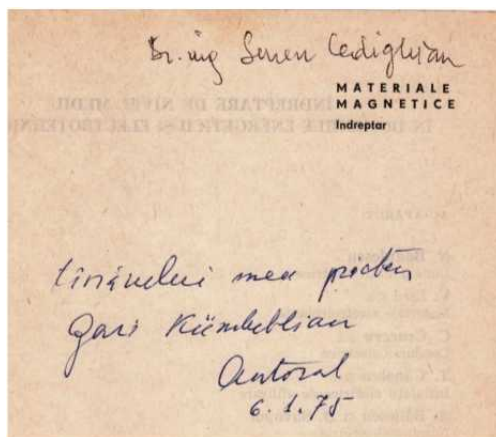 Dr. ing Suren Cedighian
MATERIALE
MAGNETICE
Indreptar
tînărului meu prieten
Gari Kümbetlian
Autorul
6.1.75